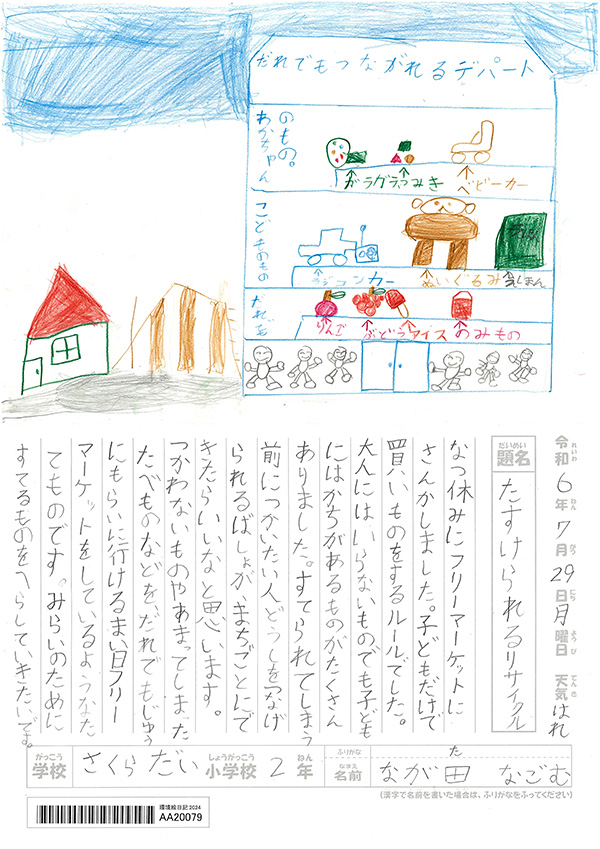 だれでもつながれるデパート
あかちゃん
のもの。
ガラグラ
つみき
ベビーカー
こどものもの
ラジコンカー
ぬいぐるみ
えほん
たべもの
りんご
ぶどう
アイス
のみもの
令和6年7月29日月曜日 天気はれ
れいわ ねん がつ にち ようび てんき
だいめい
題名 たすけられるリサイクル
なつ休みにフリーマーケットに
さんかしました。子どもだけで
買いものをするルールでした。
大人にはいらないものでも子ども
にはかちがあるものがたくさん
ありました。すてられてしまう
前につかいたい人どうしをつなげ
られるばしょが、まちごとにで
きたらいいなと思います。
つかわないものやあまってしまった
たべものなどを、だれでもじゆう
にもらいに行けるまい日フリー
マーケットをしているようなた
てものです。みらいのために
すてるものをへらしていきたいです。
がっこう しょうがっこう ねん
学校 さくらだい 小学校 2年
ふりがな た
なまえ
名前 なが田 なごむ
(漢字で名前を書いた場合は、ふりがなをふってください)
環境絵日記2024
AA20079